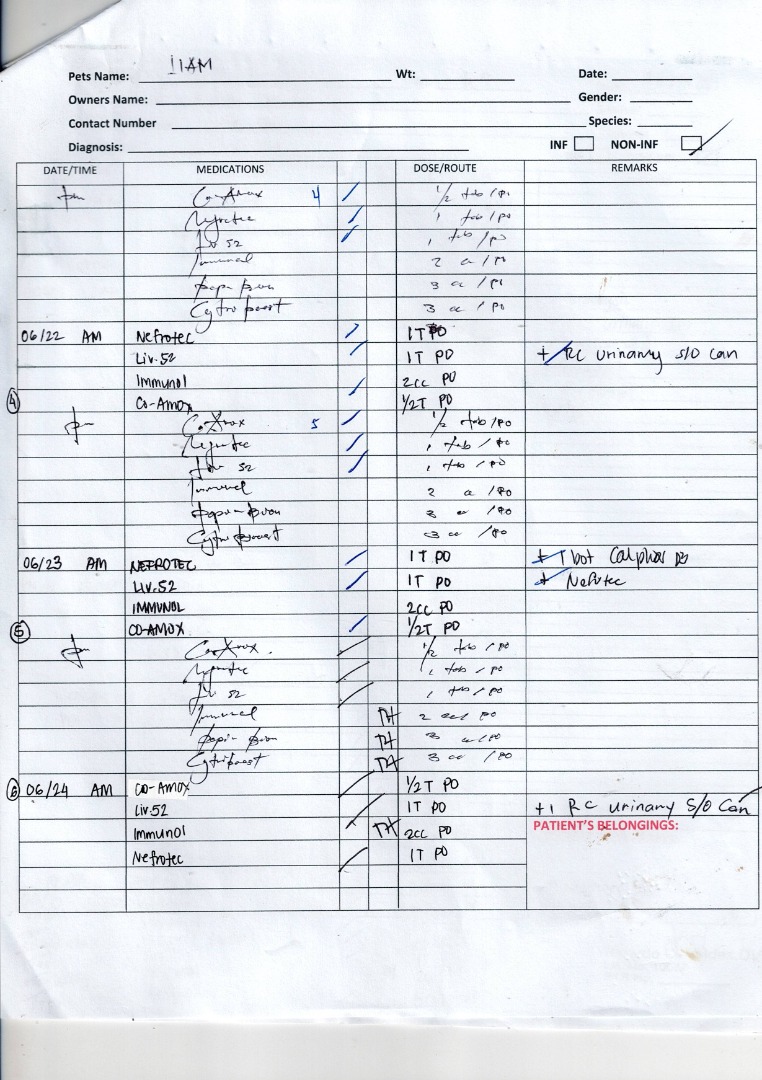 11AM
Pets Name: Wt: Date:
Owners Name: Gender:
Contact Number Species:
Diagnosis: INF NON-INF
DATE/TIME MEDICATIONS DOSE/ROUTE REMARKS
pm Co-Amox 4 1/2 tab / PO
Nefrotec 1 tab / PO
Liv 52 1 tab / PO
Immunol 2 cc / PO
3 cc / PO
3 cc / PO
06/22 AM Nefrotec 1T PO
Liv.52 1T PO + RC urinary S/O can
Immunol 2cc PO
4 Co-Amox 1/2T PO
pm Co-Amox 5 1/2 tab / PO
Nefrotec 1 tab / PO
Liv 52 1 tab / PO
Immunol 2 cc / PO
3 cc / PO
3 cc / PO
06/23 AM NEFROTEC 1T PO + 1 bot Calphos
Liv.52 1T PO + Nefrotec
IMMUNOL 2cc PO
5 CO-AMOX 1/2T PO
pm Co-Amox. 1/2 tab / PO
Nefrotec 1 tab / PO
Liv 52 1 tab / PO
Immunol TH 2 cc / PO
TH 3 cc / PO
TH 3 cc / PO
6 06/24 AM CO-AMOX 1/2T PO
Liv.52 1T PO +1 RC urinary S/O Can
Immunol TH 2cc PO PATIENT'S BELONGINGS:
Nefrotec 1T PO